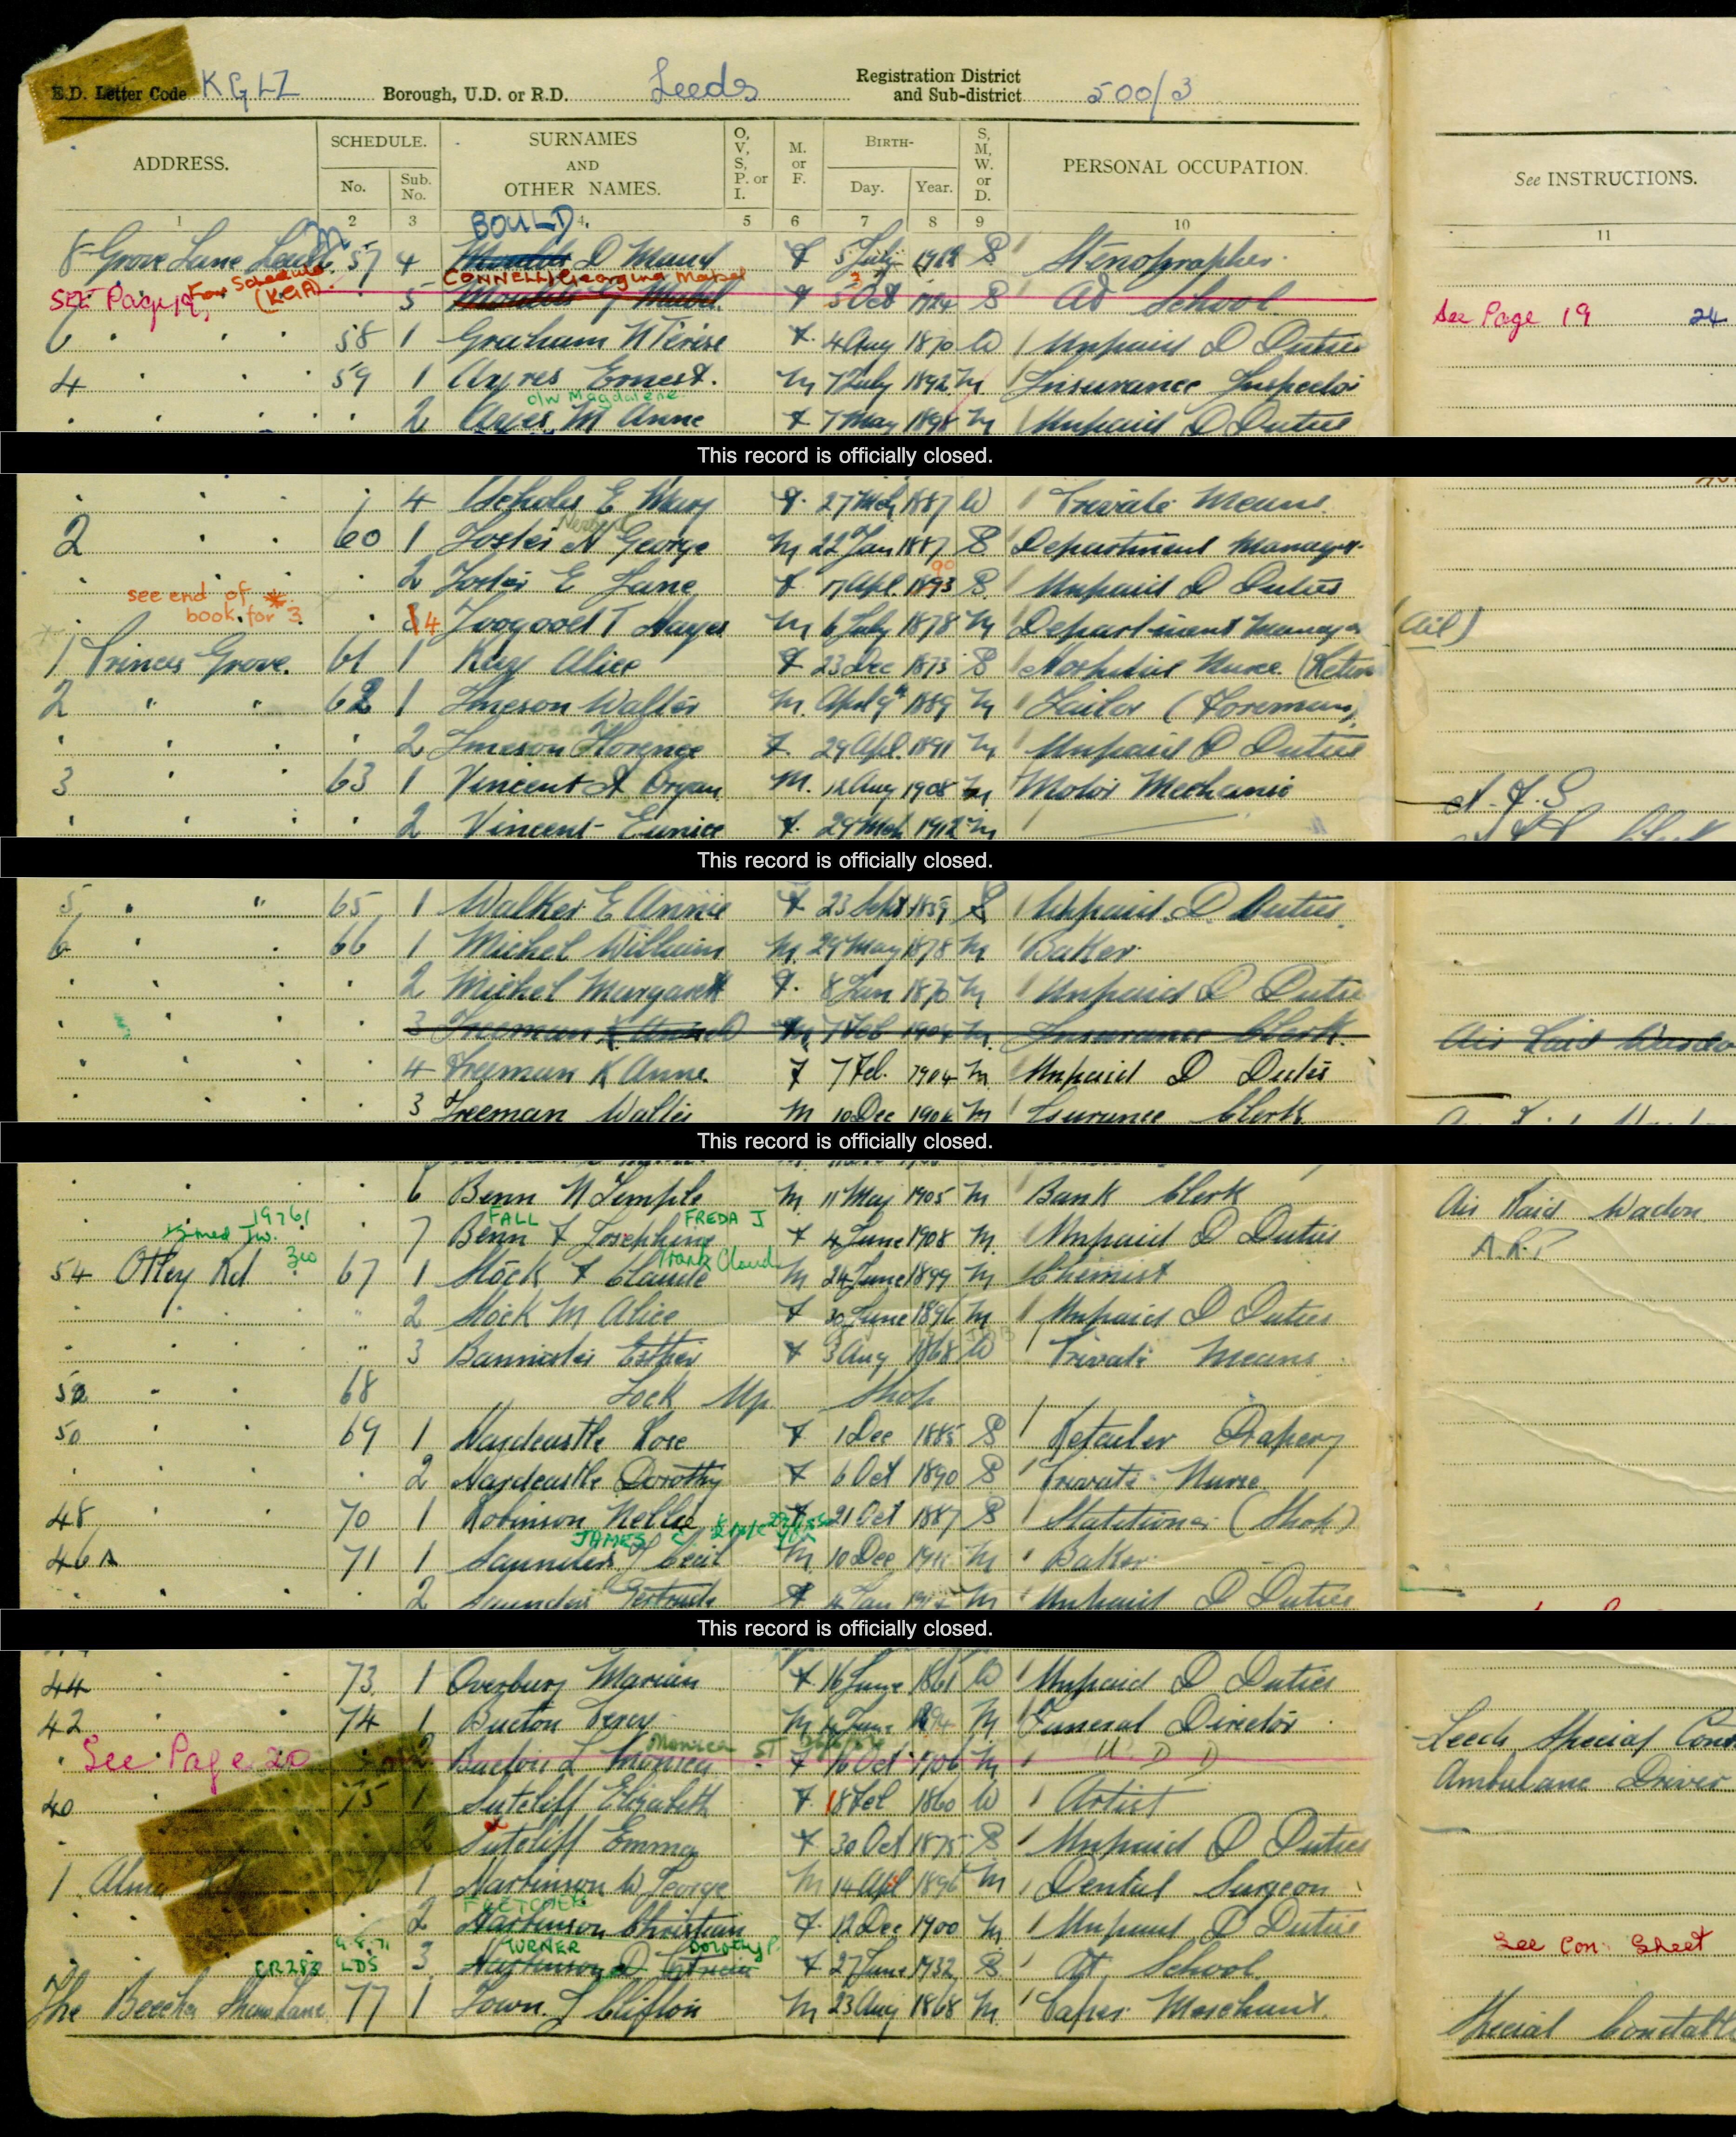 E.D. Letter Code KGLZ Borough, U.D. or R.D. Leeds Registration District and Sub-district 500/3
ADDRESS. SCHEDULE. No. Sub. No. SURNAMES AND OTHER NAMES. O, V, S, P. or I. M. or F. BIRTH- Day. Year. S, M, W. or D. PERSONAL OCCUPATION. See INSTRUCTIONS.
1 2 3 4. 5 6 7 8 9 10 11
BOULD
8 Grove Lane Leeds 57 4 D Maud F 5 July S Stenographer
CONNELL Georgina Mabel
SEE Page 19, For Schedule (KGA) 5 Mabel F Oct 1924 S At School See Page 19 24
6 58 1 Graham N F 4 Aug 1870 W Unpaid D Duties
4 59 1 Ayres Ernest. M 7 July 1892 M Insurance Inspector
o/w Magdalene
2 Ayres M Anne F 7 May 1898 M Unpaid D Duties
This record is officially closed.
4 Scholes E Mary F 27 Mch 1887 W Private Means
Herbert
2 60 1 Foster H George M 22 Jan 1887 S Department Manager
90
2 Foster E Jane F 17 Apl. 1893 S Unpaid D Duties
see end of book for 3
4 Toogood T Hayes M 6 July 1878 M Department Manager (Oil)
1 Princes Grove. 61 1 Kay Alice F 23 Dec 1873 S Hospital Nurse (Retire
2 " " 62 1 Imeson Walter M. April 9th 1889 M Tailor (Foreman)
2 Imeson Florence F. 29 Apl. 1891 M Unpaid D Duties
3 63 1 Vincent A Bryan M. 12 Aug 1908 M Motor Mechanic A.F.S
2 Vincent Eunice F. 29 Mch 1912 M
This record is officially closed.
5, " 65 1 Walker E Annie F 23 Sept 1859 S Unpaid D Duties
6 66 1 Michel William M. 29 May 1878 M Baker
2 Michel Margaret F. 8 Jan 1870 M Unpaid D Duties
3 Freeman K M 7 Feb 1904 M. Insurance Clerk. Air Raid Warden
4 Freeman K Anne. F 7 Feb. 1904 M. Unpaid D Duties
3 Freeman Walter M 10 Dec 1906 M Isurance Clerk
This record is officially closed.
6 Benn N Temple M 11 May 1905 M Bank Clerk Air Raid Wadon
FALL FREDA J
7 Benn F Josephine F 4 June 1908 M. Unpaid D Duties A.R.P
Frank Claud
54 Otley Rd 67 1 Stock F Claude M 24 June 1899 M Chemist
" 2 Stock M Alice F 30 June 1896 M Unpaid D Duties
" 3 Bannister Esther F 3 Aug 1868 W Private Means
52 68 Lock Up Shop
50 69 1 Hardcastle Rose F 1 Dec 1885 S Retailer Drapery
2 Hardcastle Dorothy F 6 Oct 1890 S Private Nurse
48 70 1 Robinson Nellie F 21 Oct 1887 S Stationer (Shop)
JAMES C
46A 71 1 Saunders J Cecil M 10 Dec M Baker
2 Saunders Gertrude F 4 Jan M Unpaid D Duties
This record is officially closed.
44 73. 1 Overbury Marian F 16 June 1861 W Unpaid D Duties
42 74 1 Buxton Percy M 4 June 1894 M Funeral Director Leeds Special Cons
Monica
See Page 20 2 Buxton L Monica F 16 Oct 1906 M U. D D Ambulane Driver
40 75 1 Sutcliff Elizabeth F 18 Feb 1860 W Artist
2 Sutcliff Emma F 30 Oct 1875 S Unpaid D Duties
1 Alma Rd 76 1 Harbinson W George M 14 Apl 1896 M Dental Surgeon
FLETCHER
2 Harbinson Christian F. 12 Dec 1900 M Unpaid D Duties See Con. Sheet
TURNER Dorothy P.
CR283 LDS 3 Harbinson D Patricia F 27 June 1932 S At School
The Beeches Shaw Lane 77 1 Town. J Clifton M 23 Aug 1868 M. Paper Merchant. Special Constable